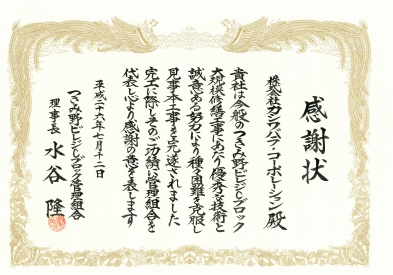 感謝状
株式会社カシワバラ・コーポレーション殿
貴社は今般のつきみ野ビレジCブロック
大規模修繕工事にあたり優秀な技術と
誠意ある努力により種々困難を克服し
見事本工事を完遂されました
完工に際しそのご功績に管理組合を
代表し心より感謝の意を表します
平成二十六年七月十二日
つきみ野ビレジCブロック管理組合
理事長 水谷 隆